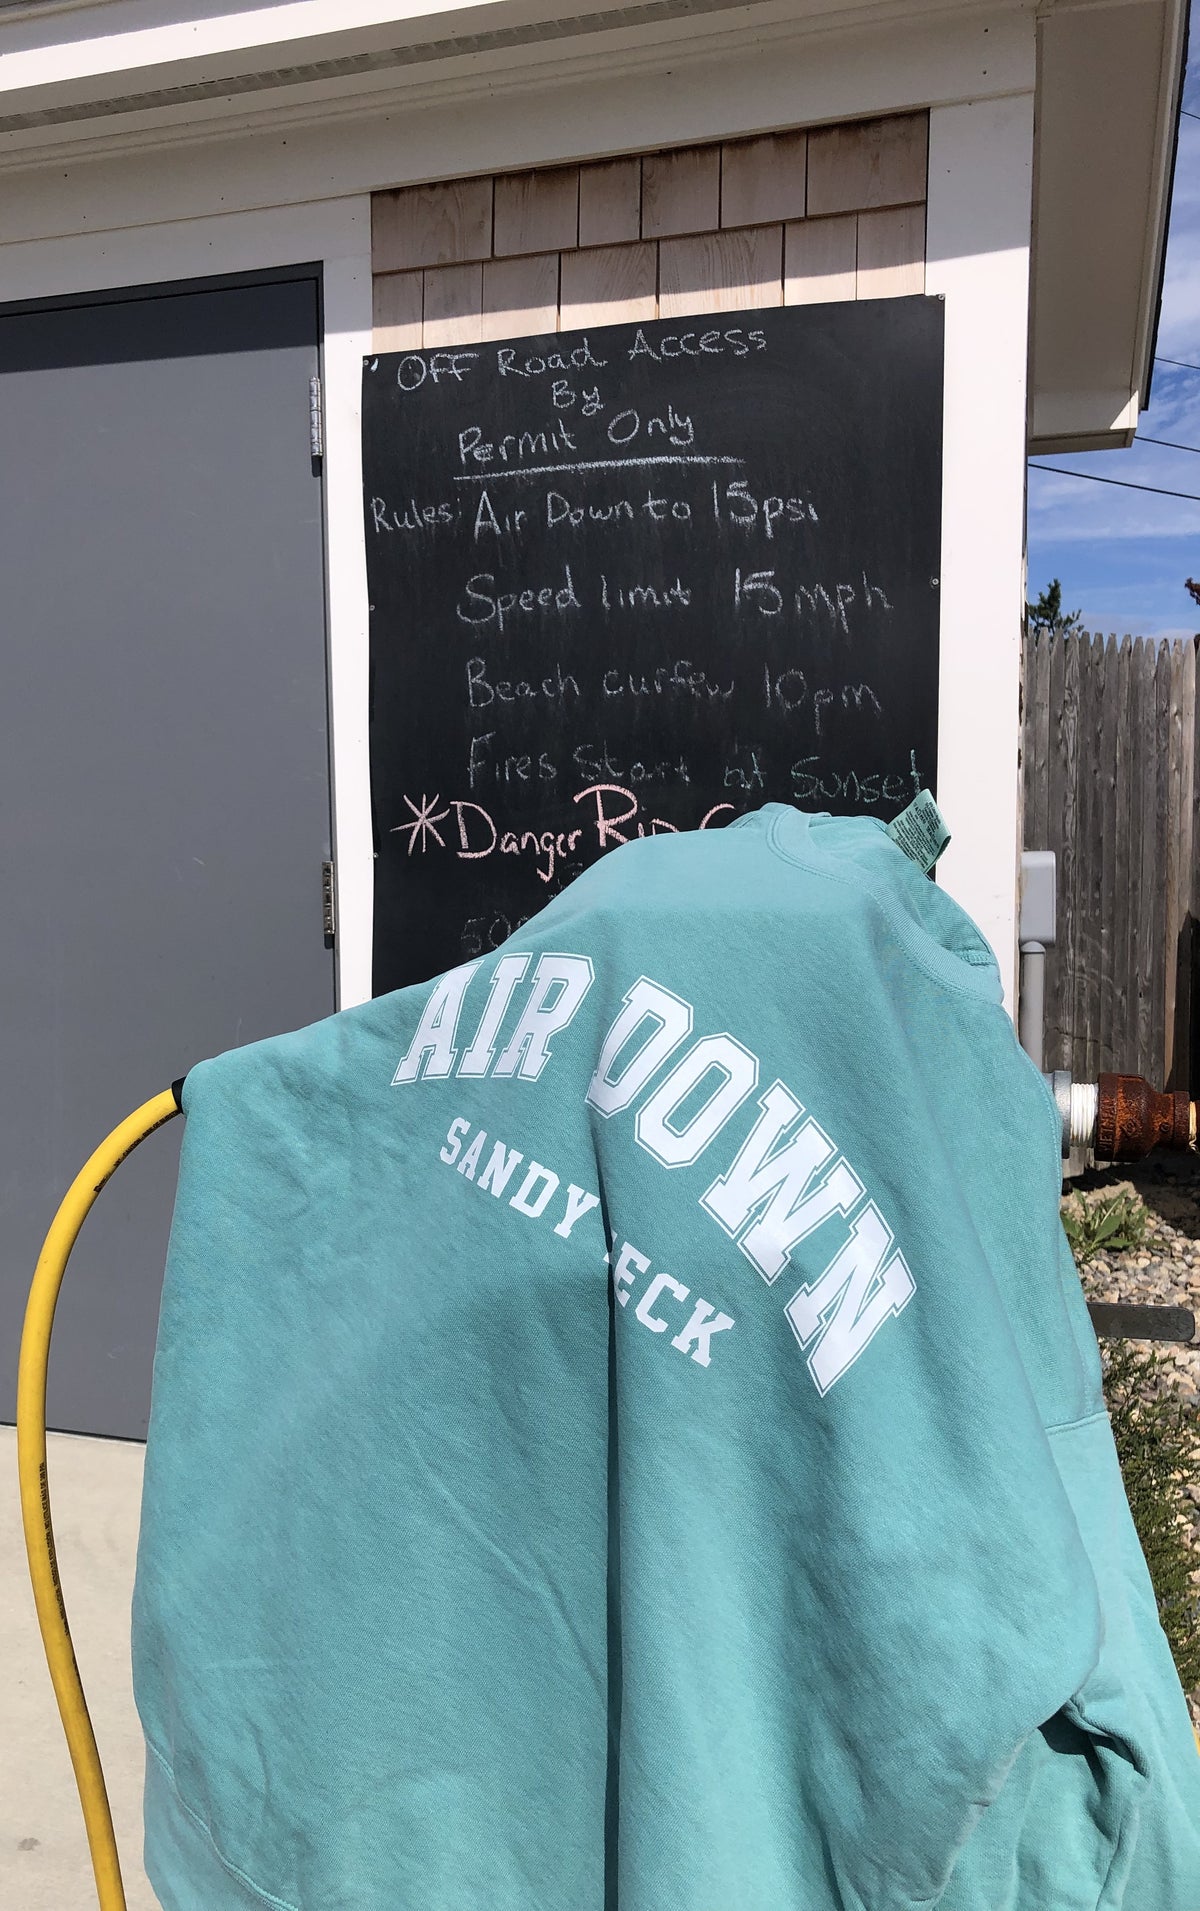 OFF Road Access
By
Permit Only
Rules: Air Down to 15psi
Speed limit 15 mph
Beach curfew 10pm
Fires Start at Sunset
*Danger Rip
AIR DOWN
SANDY ECK